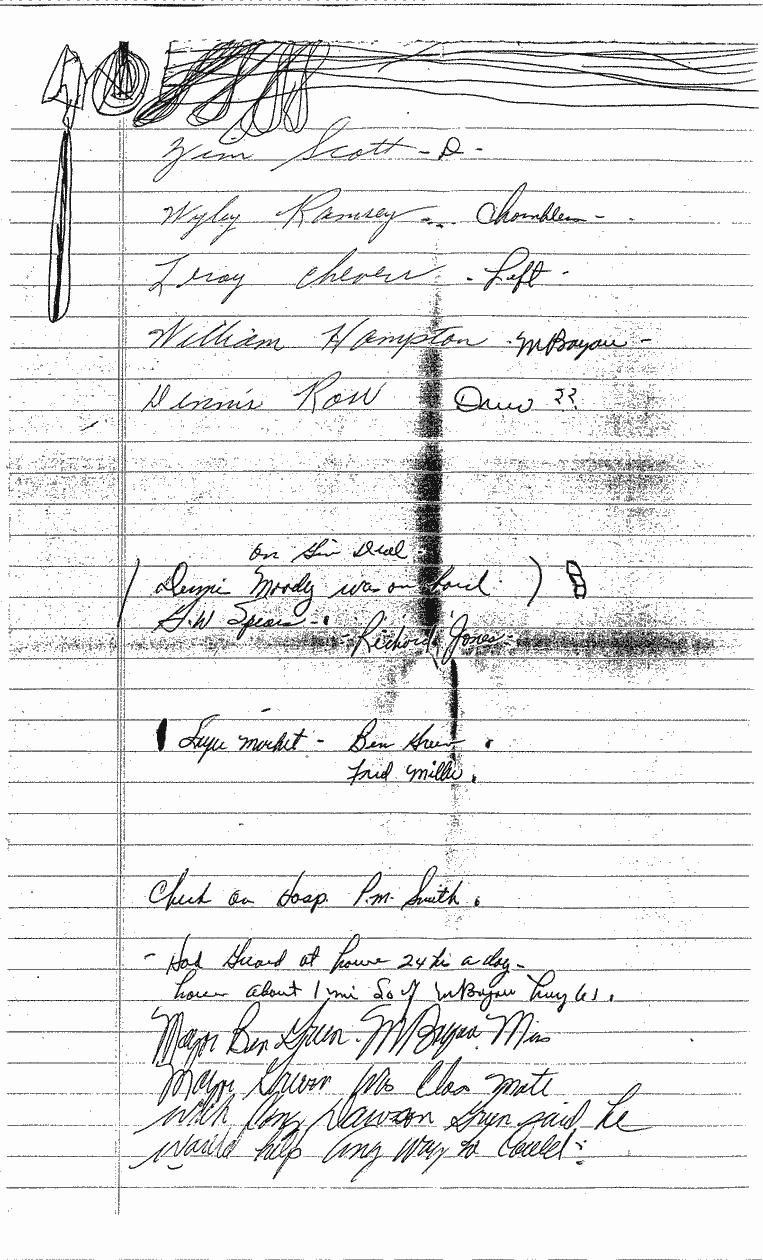 Jim Scott - D -
Wyley Ramsey - Chamblers -
Leroy Chevers - Left -
William Hampton - M Bayou -
Dennis Row Drew ??
on Gin Deal
( Dennis Moody was on board )
G.W Spears -
- Richard Jones -
Supe market - Ben Green .
Fred Miller .
Check on Hosp. P.M. Smith .
- Had Guard at house 24 hr a day -
house about 1 mi So of M Bayou hwy 61 .
Mayor Ben Green - M Bayou Miss
Mayor Green was Class mate
with Dawson Green said he
would help any way he could .